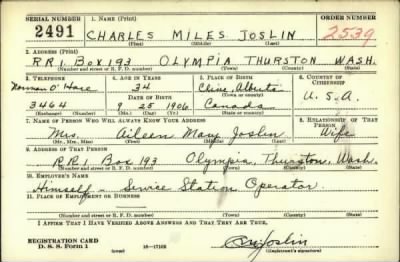 SERIAL NUMBER 1. NAME (Print) ORDER NUMBER
2491 CHARLES MILES JOSLIN 2539
(First) (Middle) (Last)
2. ADDRESS (Print)
R.R.1 Box 193 OLYMPIA THURSTON WASH.
(Number and street or R. F. D. number) (Town) (County) (State)
3. TELEPHONE 4. AGE IN YEARS 5. PLACE OF BIRTH 6. COUNTRY OF CITIZENSHIP
Norman O'Hare 34 Cline, Alberta
DATE OF BIRTH (Town or county) U.S.A.
3464 9 25 1906 Canada
(Exchange) (Number) (Mo.) (Day) (Yr.) (State or country)
7. NAME OF PERSON WHO WILL ALWAYS KNOW YOUR ADDRESS 8. RELATIONSHIP OF THAT PERSON
Mrs. Aileen Mary Joslin Wife
(Mr., Mrs., Miss) (First) (Middle) (Last)
9. ADDRESS OF THAT PERSON
R.R.1 Box 193 Olympia, Thurston, Wash.
(Number and street or R. F. D. number) (Town) (County) (State)
10. EMPLOYER'S NAME
Himself - Service Station Operator
11. PLACE OF EMPLOYMENT OR BUSINESS
(Number and street or R. F. D. number) (Town) (County) (State)
I AFFIRM THAT I HAVE VERIFIED ABOVE ANSWERS AND THAT THEY ARE TRUE.
REGISTRATION CARD
D. S. S. Form 1 (over) 16—17105 (Registrant's signature)